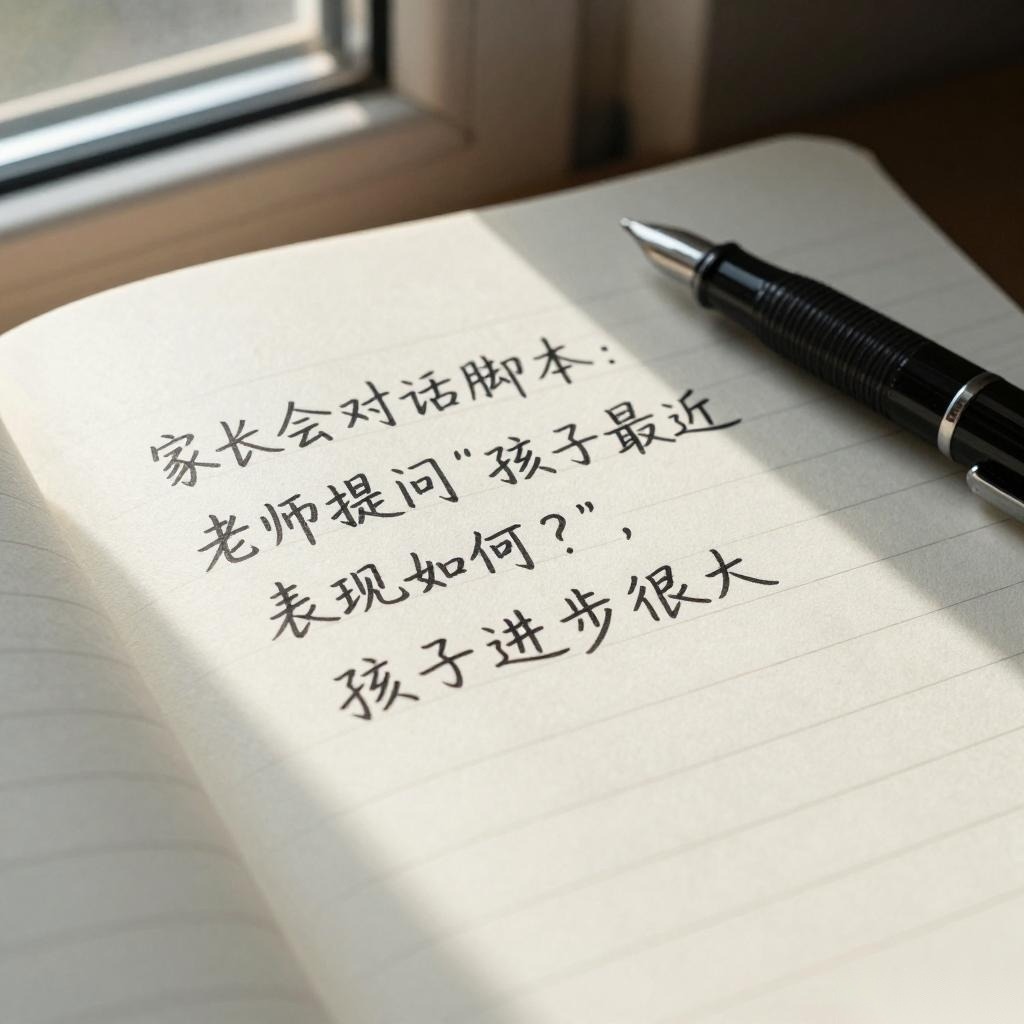 家长会对话脚本：
老师提问“孩子最近
表现如何？”，
孩子进步很大